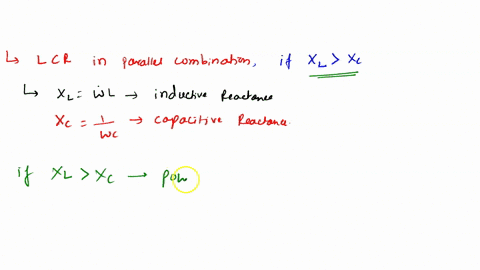 ↳ LCR in parallel combination, if XL > XC
↳ XL = ωL → inductive Reactance
XC = 1/ωC → capacitive Reactance.
if XL > XC → pow